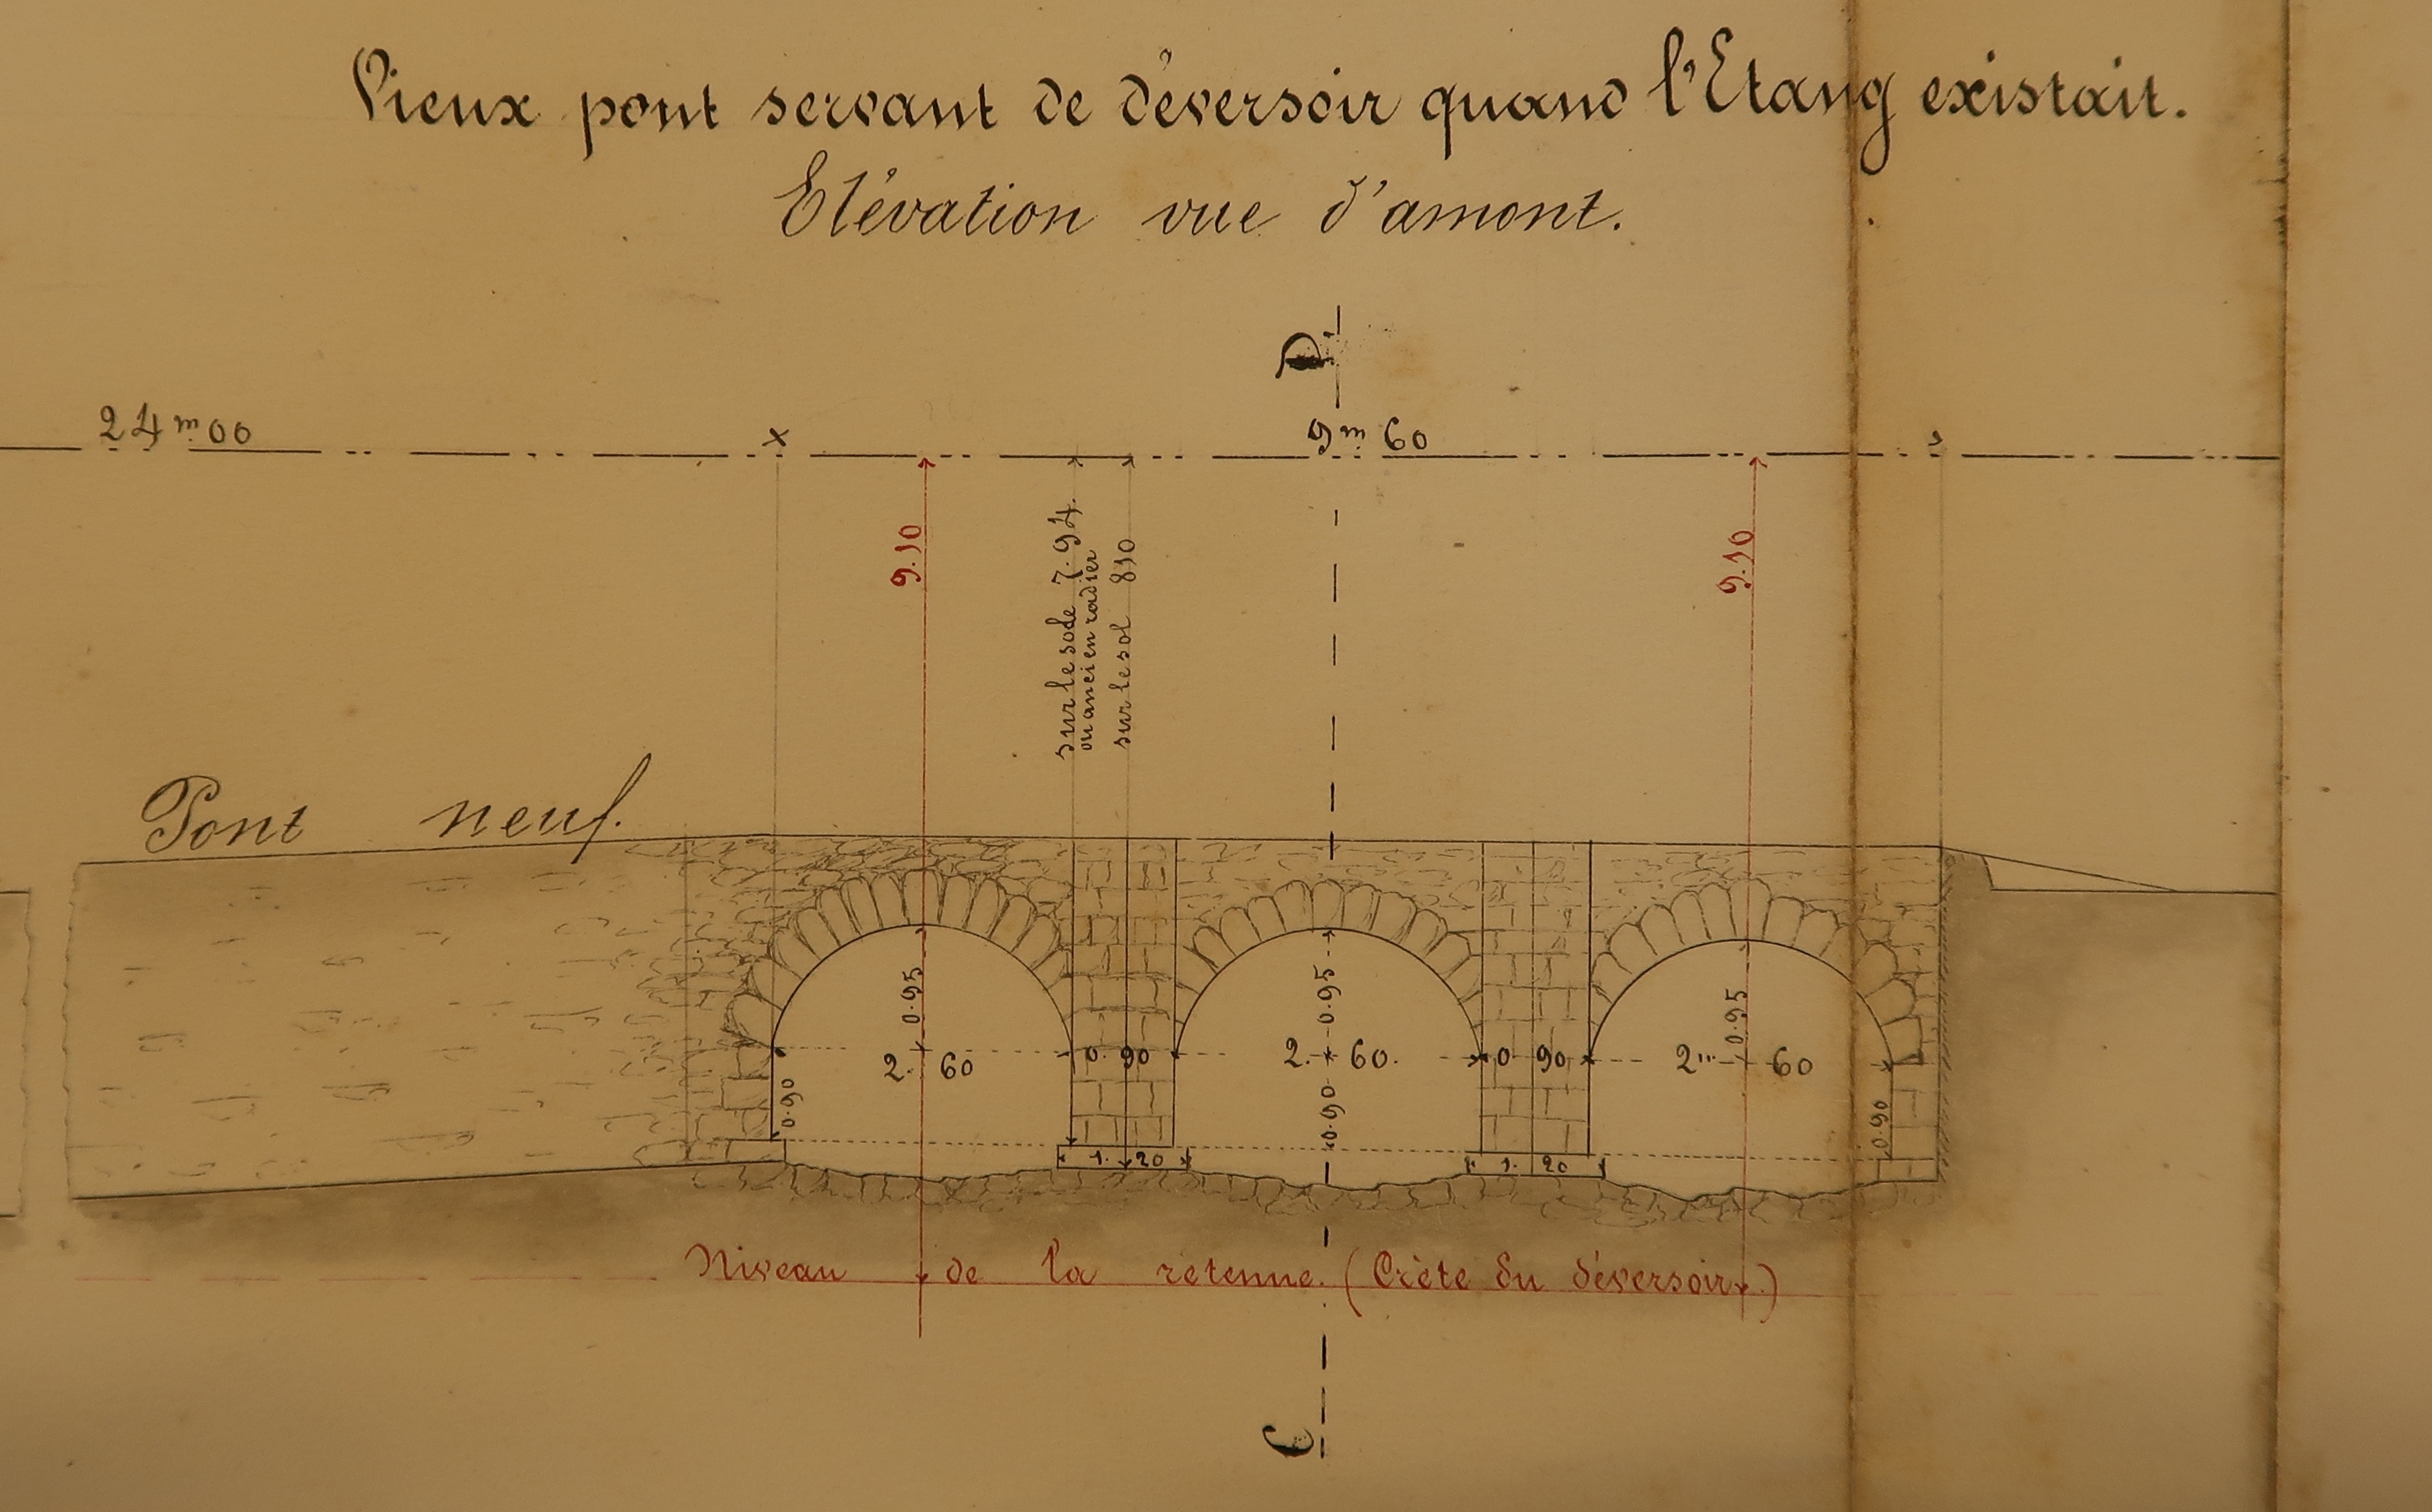 Vieux pont servant de déversoir quand l'Etang existait.
Elévation vue d'amont.
D
24m00
9m60
9.10
sur le socle 7.94
ou ancien radier
sur le sol 8.10
9.10
Pont neuf.
0.95
0.95
0.95
2.60
0.90
2.60.
0.90
2m60
0.90
0.90
0.90
1.20
1.20
Niveau de la retenue. (Crète du déversoir.)
C